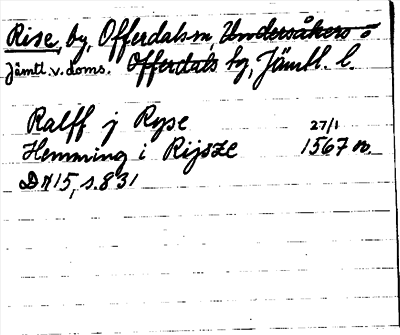 Rise, by, Offerdals sn, Undersåkers o
Jämtl. v. doms. Offerdals tg, Jämtl. l.
Ralff j Ryse 27/1
Hemming i Rijsze 1567 n.
DN 15, s. 831